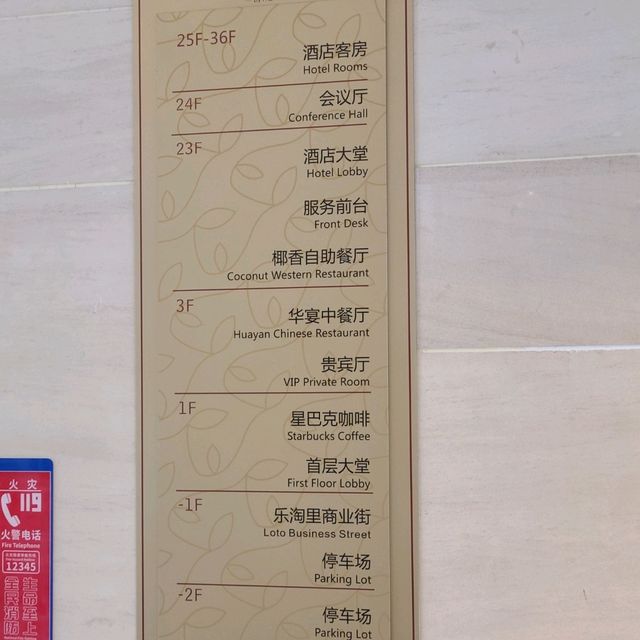 25F-36F
酒店客房
Hotel Rooms
24F
会议厅
Conference Hall
23F
酒店大堂
Hotel Lobby
服务前台
Front Desk
椰香自助餐厅
Coconut Western Restaurant
3F
华宴中餐厅
Huayan Chinese Restaurant
贵宾厅
VIP Private Room
1F
星巴克咖啡
Starbucks Coffee
首层大堂
First Floor Lobby
-1F
乐淘里商业街
Loto Business Street
停车场
Parking Lot
-2F
停车场
Parking Lot
火 灾
119
火警电话
Fire Telephone
12345
全民消防
生命至上